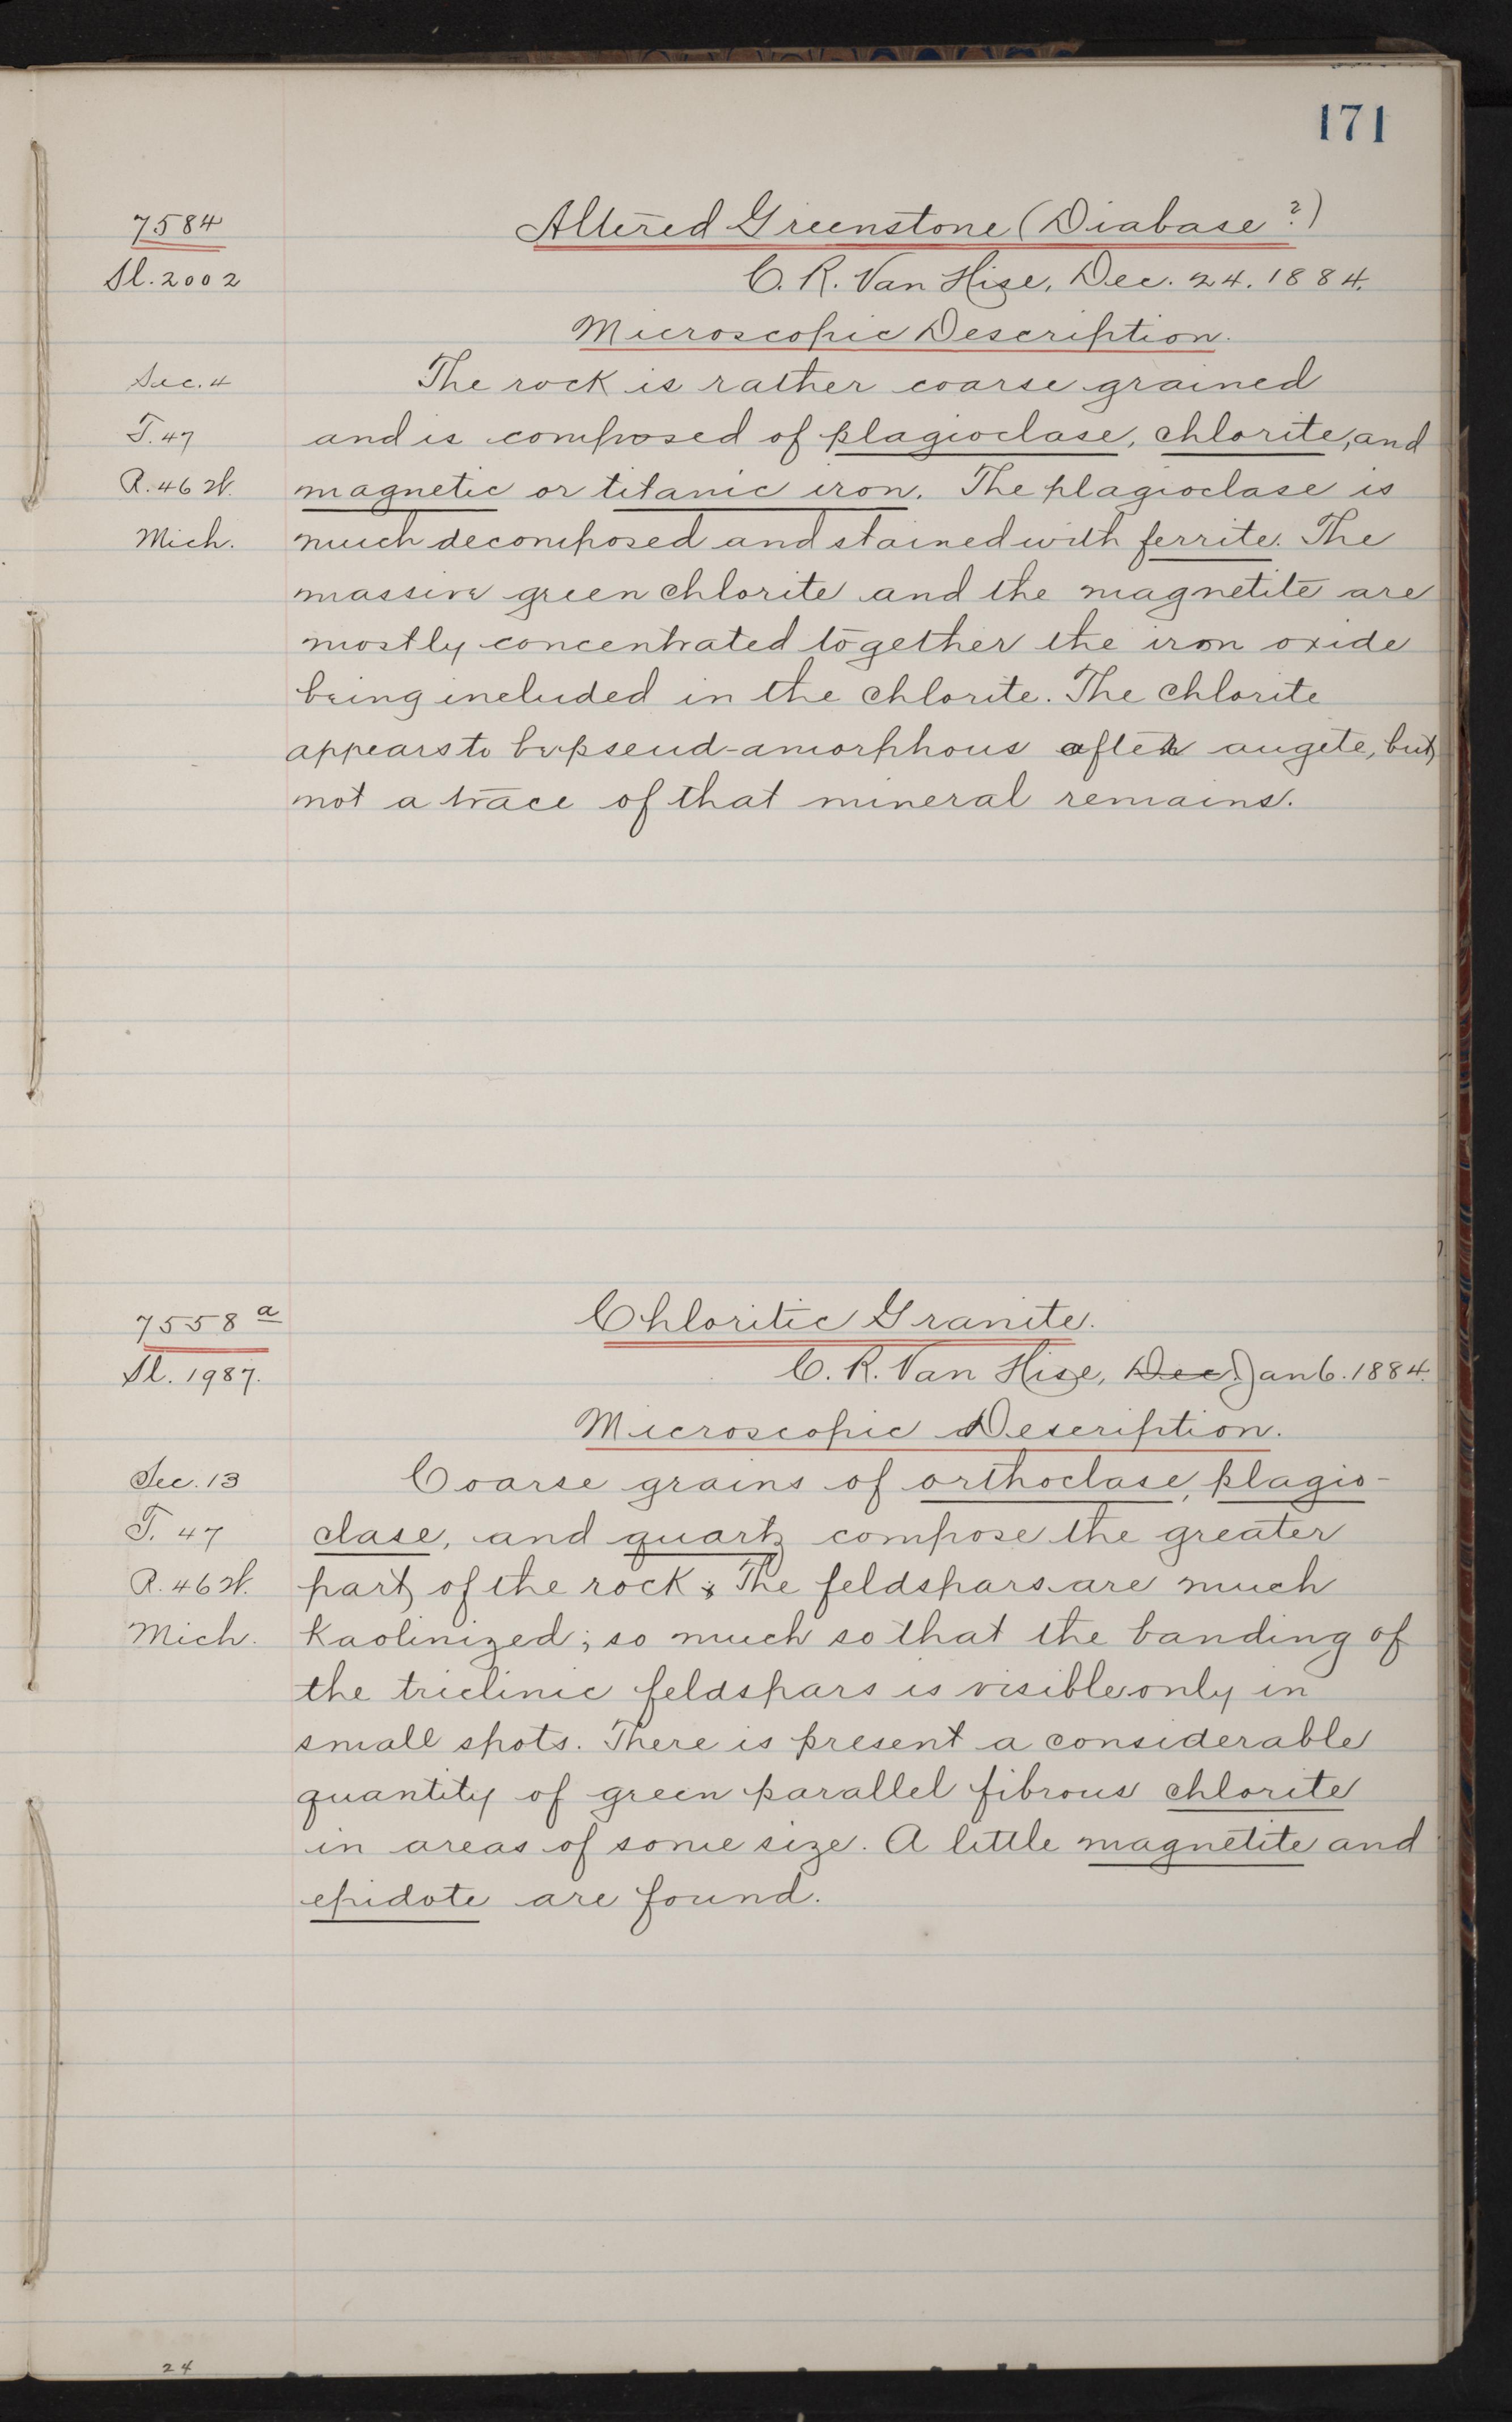 171
7584
Altered Greenstone (Diabase?)
Sl. 2002
C. R. Van Hise, Dec. 24. 1884.
Microscopic Description.
Sec. 4
The rock is rather coarse grained
T. 47
and is composed of plagioclase, chlorite, and
R. 46 W.
magnetic or titanic iron. The plagioclase is
Mich.
much decomposed and stained with ferrite. The
massive green chlorite and the magnetite are
mostly concentrated together the iron oxide
being included in the chlorite. The chlorite
appears to be pseud-amorphous after augete, but
not a trace of that mineral remains.
7558 a
Chloritic Granite.
Sl. 1987.
C. R. Van Hise, Dec. Jan 6. 1884.
Microscopic Description.
Sec. 13
Coarse grains of orthoclase, plagio-
T. 47
clase, and quartz compose the greater
R. 46 W.
part of the rock; The feldspars are much
Mich.
kaolinized; so much so that the banding of
the triclinic feldspars is visible only in
small spots. There is present a considerable
quantity of green parallel fibrous chlorite
in areas of some size. A little magnetite and
epidote are found.
24